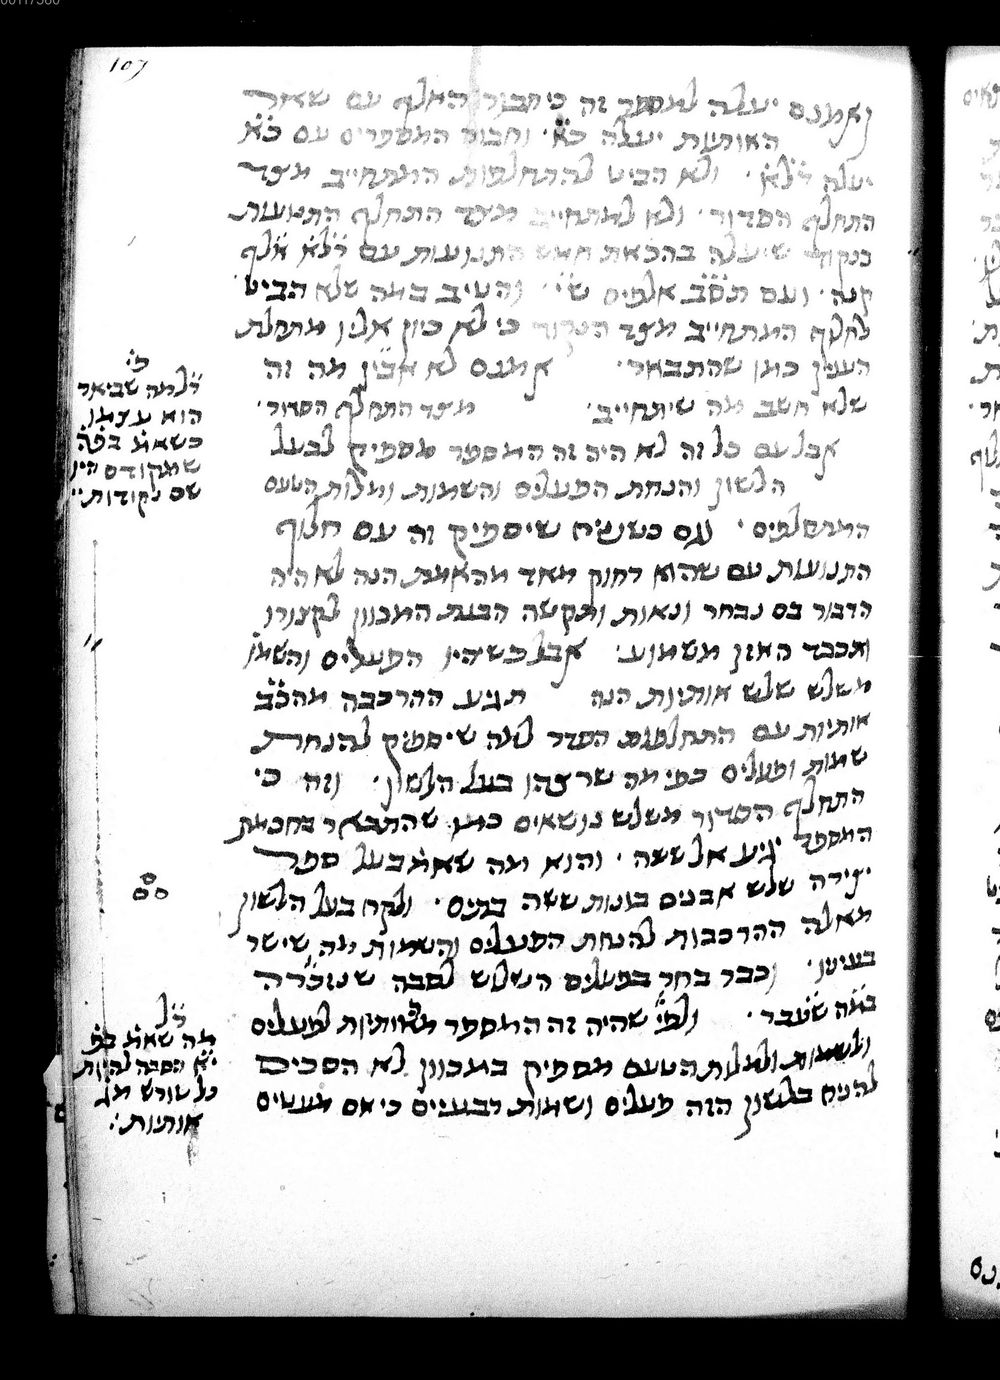 107
ואמנם יעלה למספר זה כי חבור האלף עם שאר
האותיות יעלה כ̈א̈ וחבור המספרים עם כ̈א̈
יעלה ר̈ל̈א̈ ולא הביט להתחלפות המתחייב מצד
התחלף הסדור ולא למתחייב מצד התחלף התנועות
בנקוד שיעלה בהכאת חמש התנועות עם ר̈ל̈א̈ אלף
קנה ועם ת̈ס̈ב̈ אלפים ש̈י̈ והטיב במה שלא הביט
לחלוף המתחייב מצד הנקוד כי לא כיון אליו מתחלת
הענין כמו שהתבאר אמנם לא אבין מה זה
שלא חשב מה שיתחייב מצד התחלף הסדור
אבל עם כל זה לא היה זה המספר מספיק לבעל
הלשון והנחת הפעלים והשמות ומלות הטעם
המתחלפים וגם כשנניח שיספיק זה עם חלוף
התנועות עם שהוא רחוק מאד מהאמת הנה לא היה
הדבור בם נבחר ונאות ותקשה הבנת המכוון לקצורו
ותכבד האזן משמוע אבל כשיהיו הפעלים והשמו
משלש שלש אותיות הנה תגיע ההרכבה מהכ̈ב̈
אותיות עם התחלפות הסדר למה שיספיק להנחת
שמות ופעלים כפי מה שרצהו בעל הלשון וזה כי
התחלף הסדור משלש נושאים כמו שהתבאר בחכמת
המספר יגיע אל ששה והוא מה שאמ̇ בעל ספר
יצירה שלש אבנים בונות ששה בתים ולקח בעל הלשון
מאלה ההרכבות להנחת הפעלים והשמות מה שישר
בעיניו וכבר בחר בפעלים השלש לסבה שנזכרה
במה שעבר ולפי שהיה זה המספר מאותיות לפעלים
ולשמות ולמלות הטעם מספיק במכוון לא הסכים
להניח בלשון הזה פעלים ושמות רבעיים כי אם מעטים
פי̇
ר̈ל מה שביאר
הוא עצמו
כשאמ̇
שמקודם היו
שם נקודות
ר̈ל
מה שאמ̇
י̈א הסבה להיות
כל שורש מג̇
אותיות